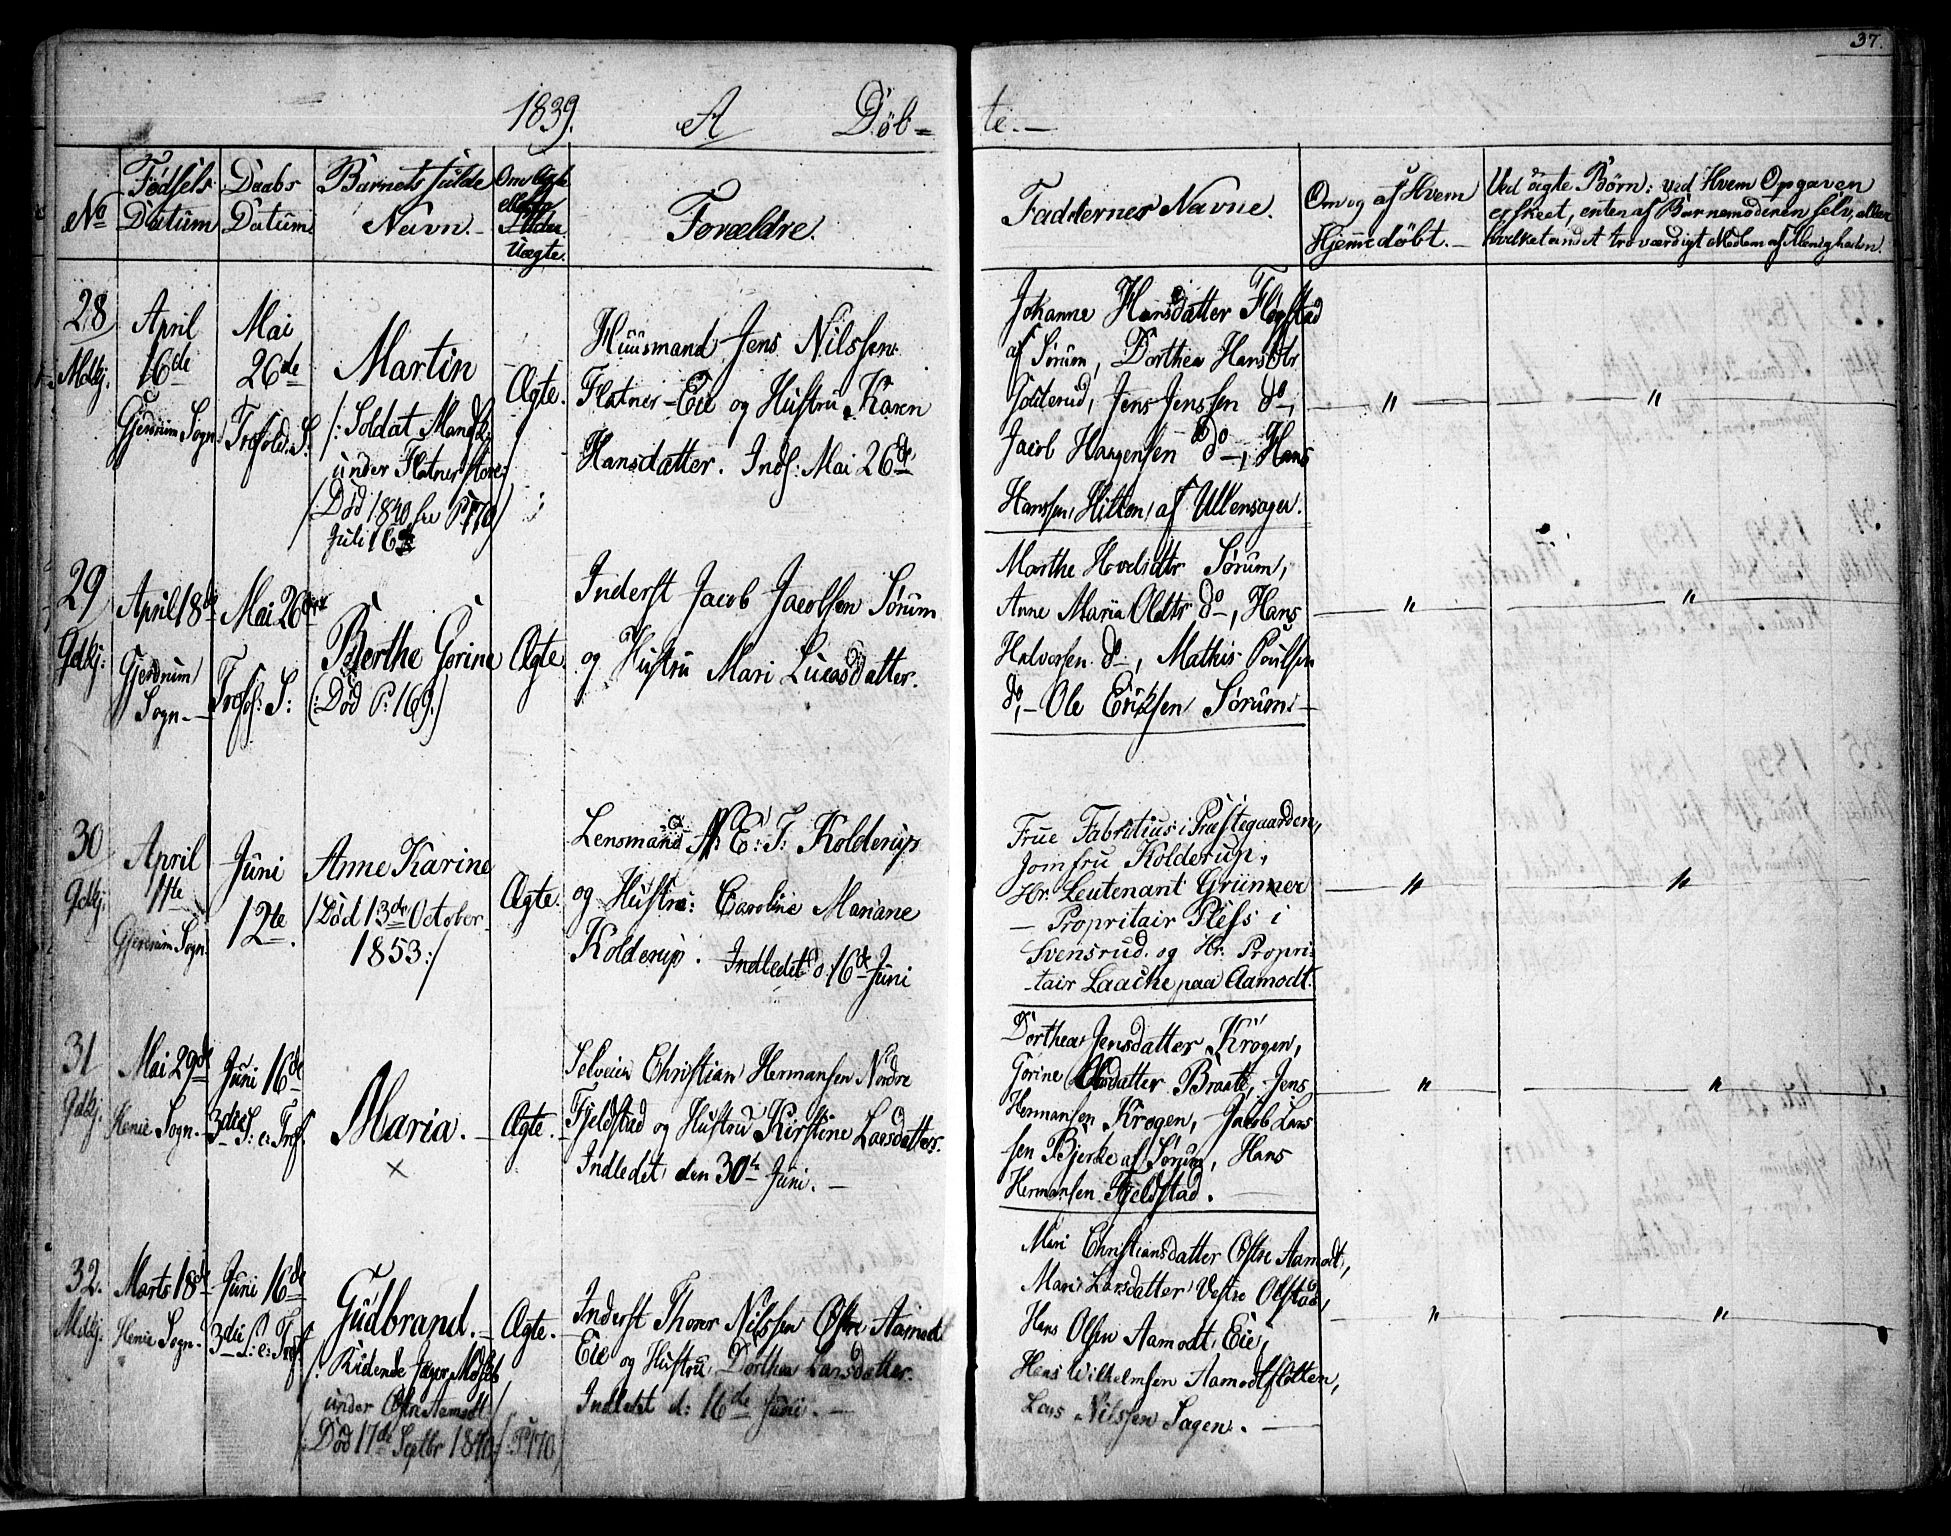 37.
1839. A Døb-
te.
No
Fødsels Datum
Daabs Datum
Barnets fulde Navn.
Om Ægte eller Uægte.
Forældre.
Faddernes Navne.
Om og af Hvem Hjemmedøbt.
Ved ægte Børn: ved Hvem Opgaven
er skeet, enten af Barnemoderen selv, eller
hvilket andet troværdigt Medlem af Menigheden.
28
Mdkj.
April
16de
Gjerdrum Sogn
Mai
26de
Trefold: S:
Martin
/: Soldat Mandk:
under Flatner Store:/
/Død 1840 P 170/
Juli 16de
Ægte.
Huusmand Jens Nilssen
Flatner-Eie og Hustru Karen
Hansdatter. Indl: Mai 26de
Johanne Hansdatter Flegstad
af Sørum, Dorthea Hansdtr
Jens Jenssen do,
Jacob do, Hans
Hanssen Hilton, af Ullensager.
"
"
29
Qdkj:
April 18de
Gjerdrum
Sogn.
Mai 26de
Trefol: S:
Berthe Gorine
(: Død P: 169:)
Ægte.
Inderst Jacob Jacobsen Sørum
og Hustru Mari Lucasdatter.
Marthe Sørum,
Anne Maria Olsdtr do, Hans
Halvorsen do, Mathis Poulsen
do, Ole Eriksen Sørum.
"
"
30
Qdkj.
April
11te
Gjerdrum Sogn
Juni
12te.
Anne Karine
/Død 13de October
1853:/
Ægte.
Lensmand N: E: T: Kolderup
og Hustru: Caroline Mariane
Kolderup. Indledet d: 16de Juni
Frue Fabritius i Præstegaarden,
Jomfru Kolderup,
Hr. Leutenant Grünner
— Propritair Pless i
Svensrud. og Hr. Propri-
tair Laache paa Aamodt.
"
"
31
Qdkj.
Mai 29de
Henie Sogn.
Juni 16de
3die S: e: Tref.
Maria.
×
Ægte.
Selveier Christian Hermansen Nordre
Fjeldstad og Hustru Kirstine Larsdatter.
Indledet den 30te Juni.
Dorthea Jensdatter Krogen,
Gorine Olsdatter Braate, Jens
Hermansen Krogen, Jacob Lars-
sen Bjerke af Sørum, Hans
Hermansen Fjeldstad.
"
"
32.
Mdkj.
Marts 18de
Henie Sogn.
Juni 16de
3die S: e: Tref.
Gudbrand.
/: Ridende Jæger
under Østre Aamodt
/: Død 17de Septbr 1840 /: P 170/
Ægte.
Inderst Thorer Nilssen Østre Aamodt
Eie og Hustru Dorthea Larsdatter.
Indledet d: 16de Juni.
Mari Christiansdatter Østre Aamodt,
Mari Larsdatter Vestre Olstad,
Hans Olsen Aamodt Eie,
Hans Wilhelmsen Aamodtflotten,
Lars Nilssen Sagen.
"
"